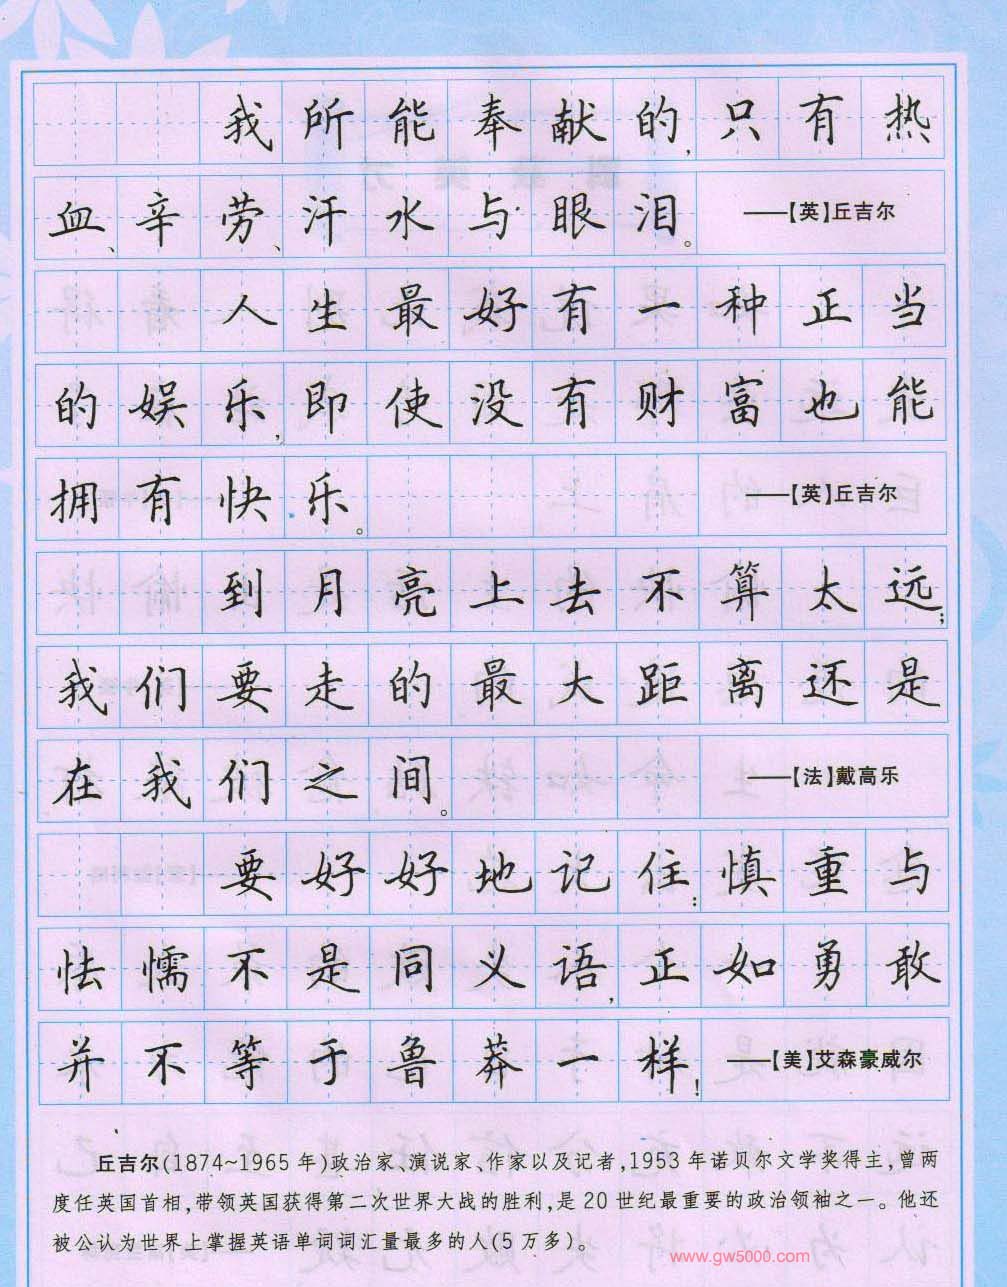 我所能奉献的,只有热
血、辛劳、汗水与眼泪。 ——【英】丘吉尔
人生最好有一种正当
的娱乐,即使没有财富也能
拥有快乐。 ——【英】丘吉尔
到月亮上去不算太远;
我们要走的最大距离还是
在我们之间。 ——【法】戴高乐
要好好地记住:慎重与
怯懦不是同义语,正如勇敢
并不等于鲁莽一样! ——【美】艾森豪威尔
丘吉尔(1874~1965年)政治家、演说家、作家以及记者,1953年诺贝尔文学奖得主,曾两
度任英国首相,带领英国获得第二次世界大战的胜利,是20世纪最重要的政治领袖之一。他还
被公认为世界上掌握英语单词词汇量最多的人(5万多)。
www.gw5000.com